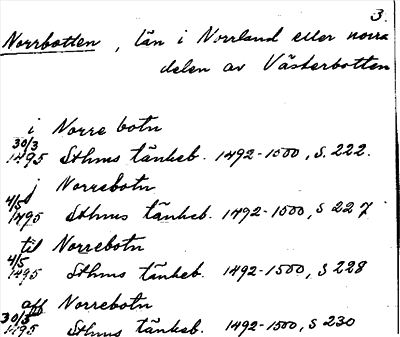 3.
Norrbotten, län i Norrland eller norra
delen av Västerbotten
i Norre botn
30/3 1495 Sthms tänkeb. 1492-1500, S. 222.
j Norrebotn
4/5 1495 Sthms tänkeb. 1492-1500, S 227
til Norrebotn
4/5 1495 Sthms tänkeb. 1492-1500, S 228
aff Norrebotn
30/3 1495 Sthms tänkeb. 1492-1500, S 230